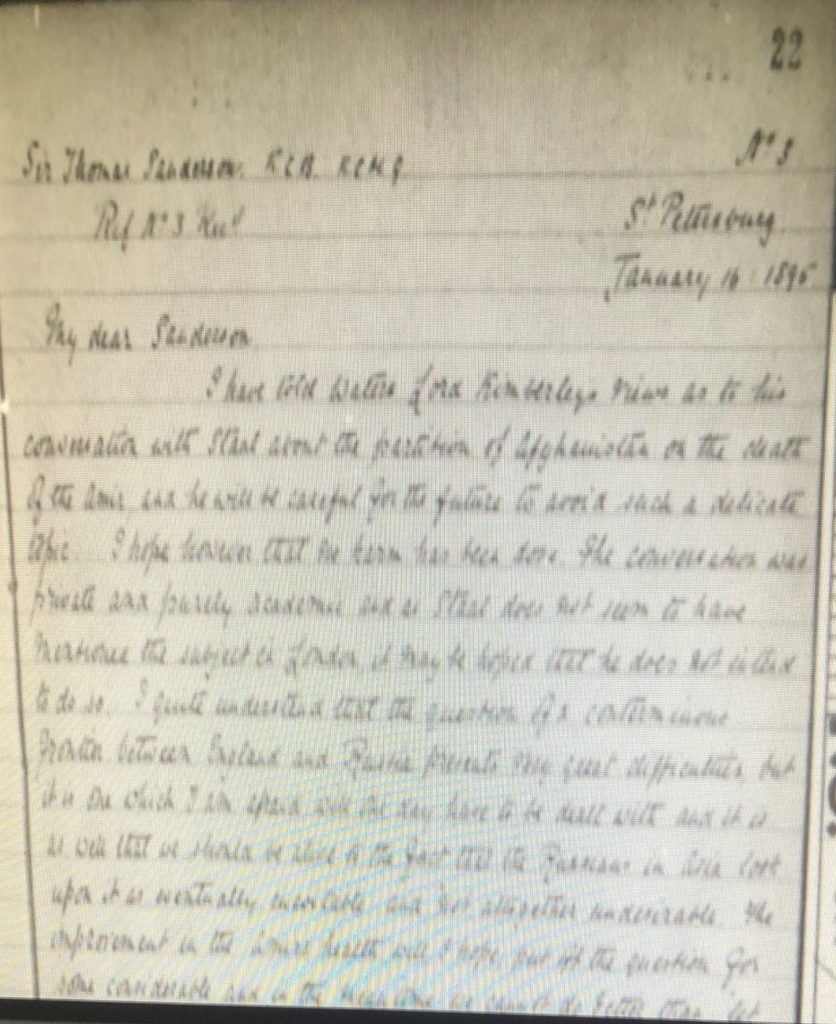 22
Sir Thomas Sanderson. KCB. KCMG
No 3
Ref No 3
St Petersburg
January 16 1895
My dear Sanderson
I have told Waters Lord Kimberleys views as to his
conversation with Staal about the partition of Afghanistan on the death
of the Amir, and he will be careful for the future to avoid such a delicate
topic. I hope however that no harm has been done. The conversation was
private and purely academic and as Staal does not seem to have
mentioned the subject in London, it may be hoped that he does not intend
to do so. I quite understand that the question of a conterminous
frontier between England and Russia presents very great difficulties, but
it is one which I am afraid will one day have to be dealt with and it is
as well that we should be alive to the fact that the Russians in Asia look
upon it as eventually inevitable and not altogether undesirable. The
improvement in the Amirs health will I hope, put off the question for
some considerable and in the meantime we cannot do better than let